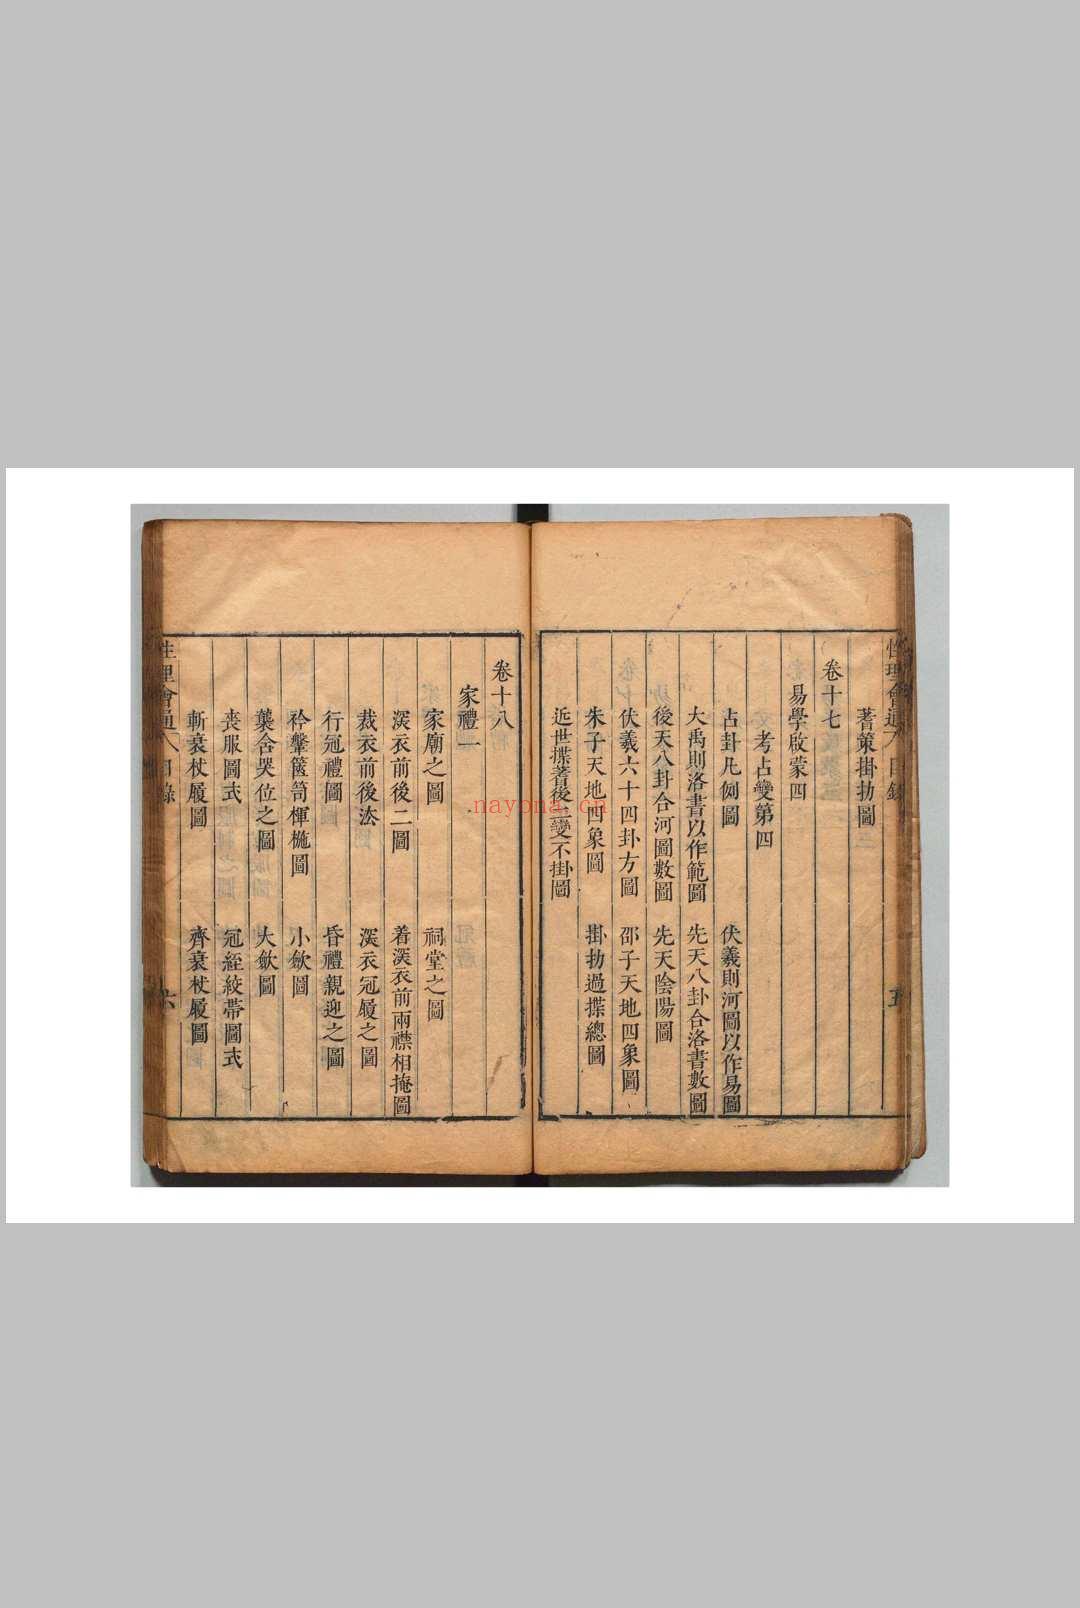 性理會通 目錄 五
蓍策掛扐圖
卷十七
易學啟蒙四
考占變第四
占卦凡例圖 伏羲則河圖以作易圖
大禹則洛書以作範圖 先天八卦合洛書數圖
後天八卦合河圖數圖 先天陰陽圖
伏羲六十四卦方圖 邵子天地四象圖
朱子天地四象圖 掛扐過揲總圖
近世揲蓍後二變不掛圖
卷十八
家禮一
家廟之圖 祠堂之圖
深衣前後二圖 着深衣前兩襟相掩圖
裁衣前後法 深衣冠履之圖
行冠禮圖 昏禮親迎之圖
衿鞶篋笥楎椸圖 小歛圖
襲含哭位之圖 大歛圖
喪服圖式 冠絰絞帶圖式
斬衰杖履圖 齊衰杖屨圖
性理會通 目錄 六
nayona.cn